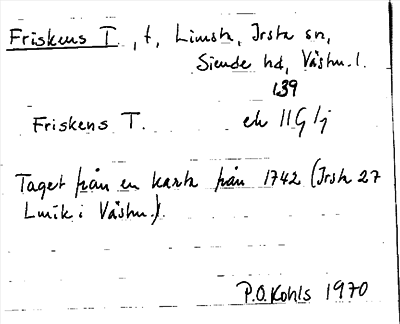 Friskens T, t, Limsta, Irsta sn,
Siende hd, Västm. l.
139
Friskens T. ek 11G 1j
Taget från en karta från 1742 (Irsta 27
Lmk i Västm.).
P.O. Kohls 1970